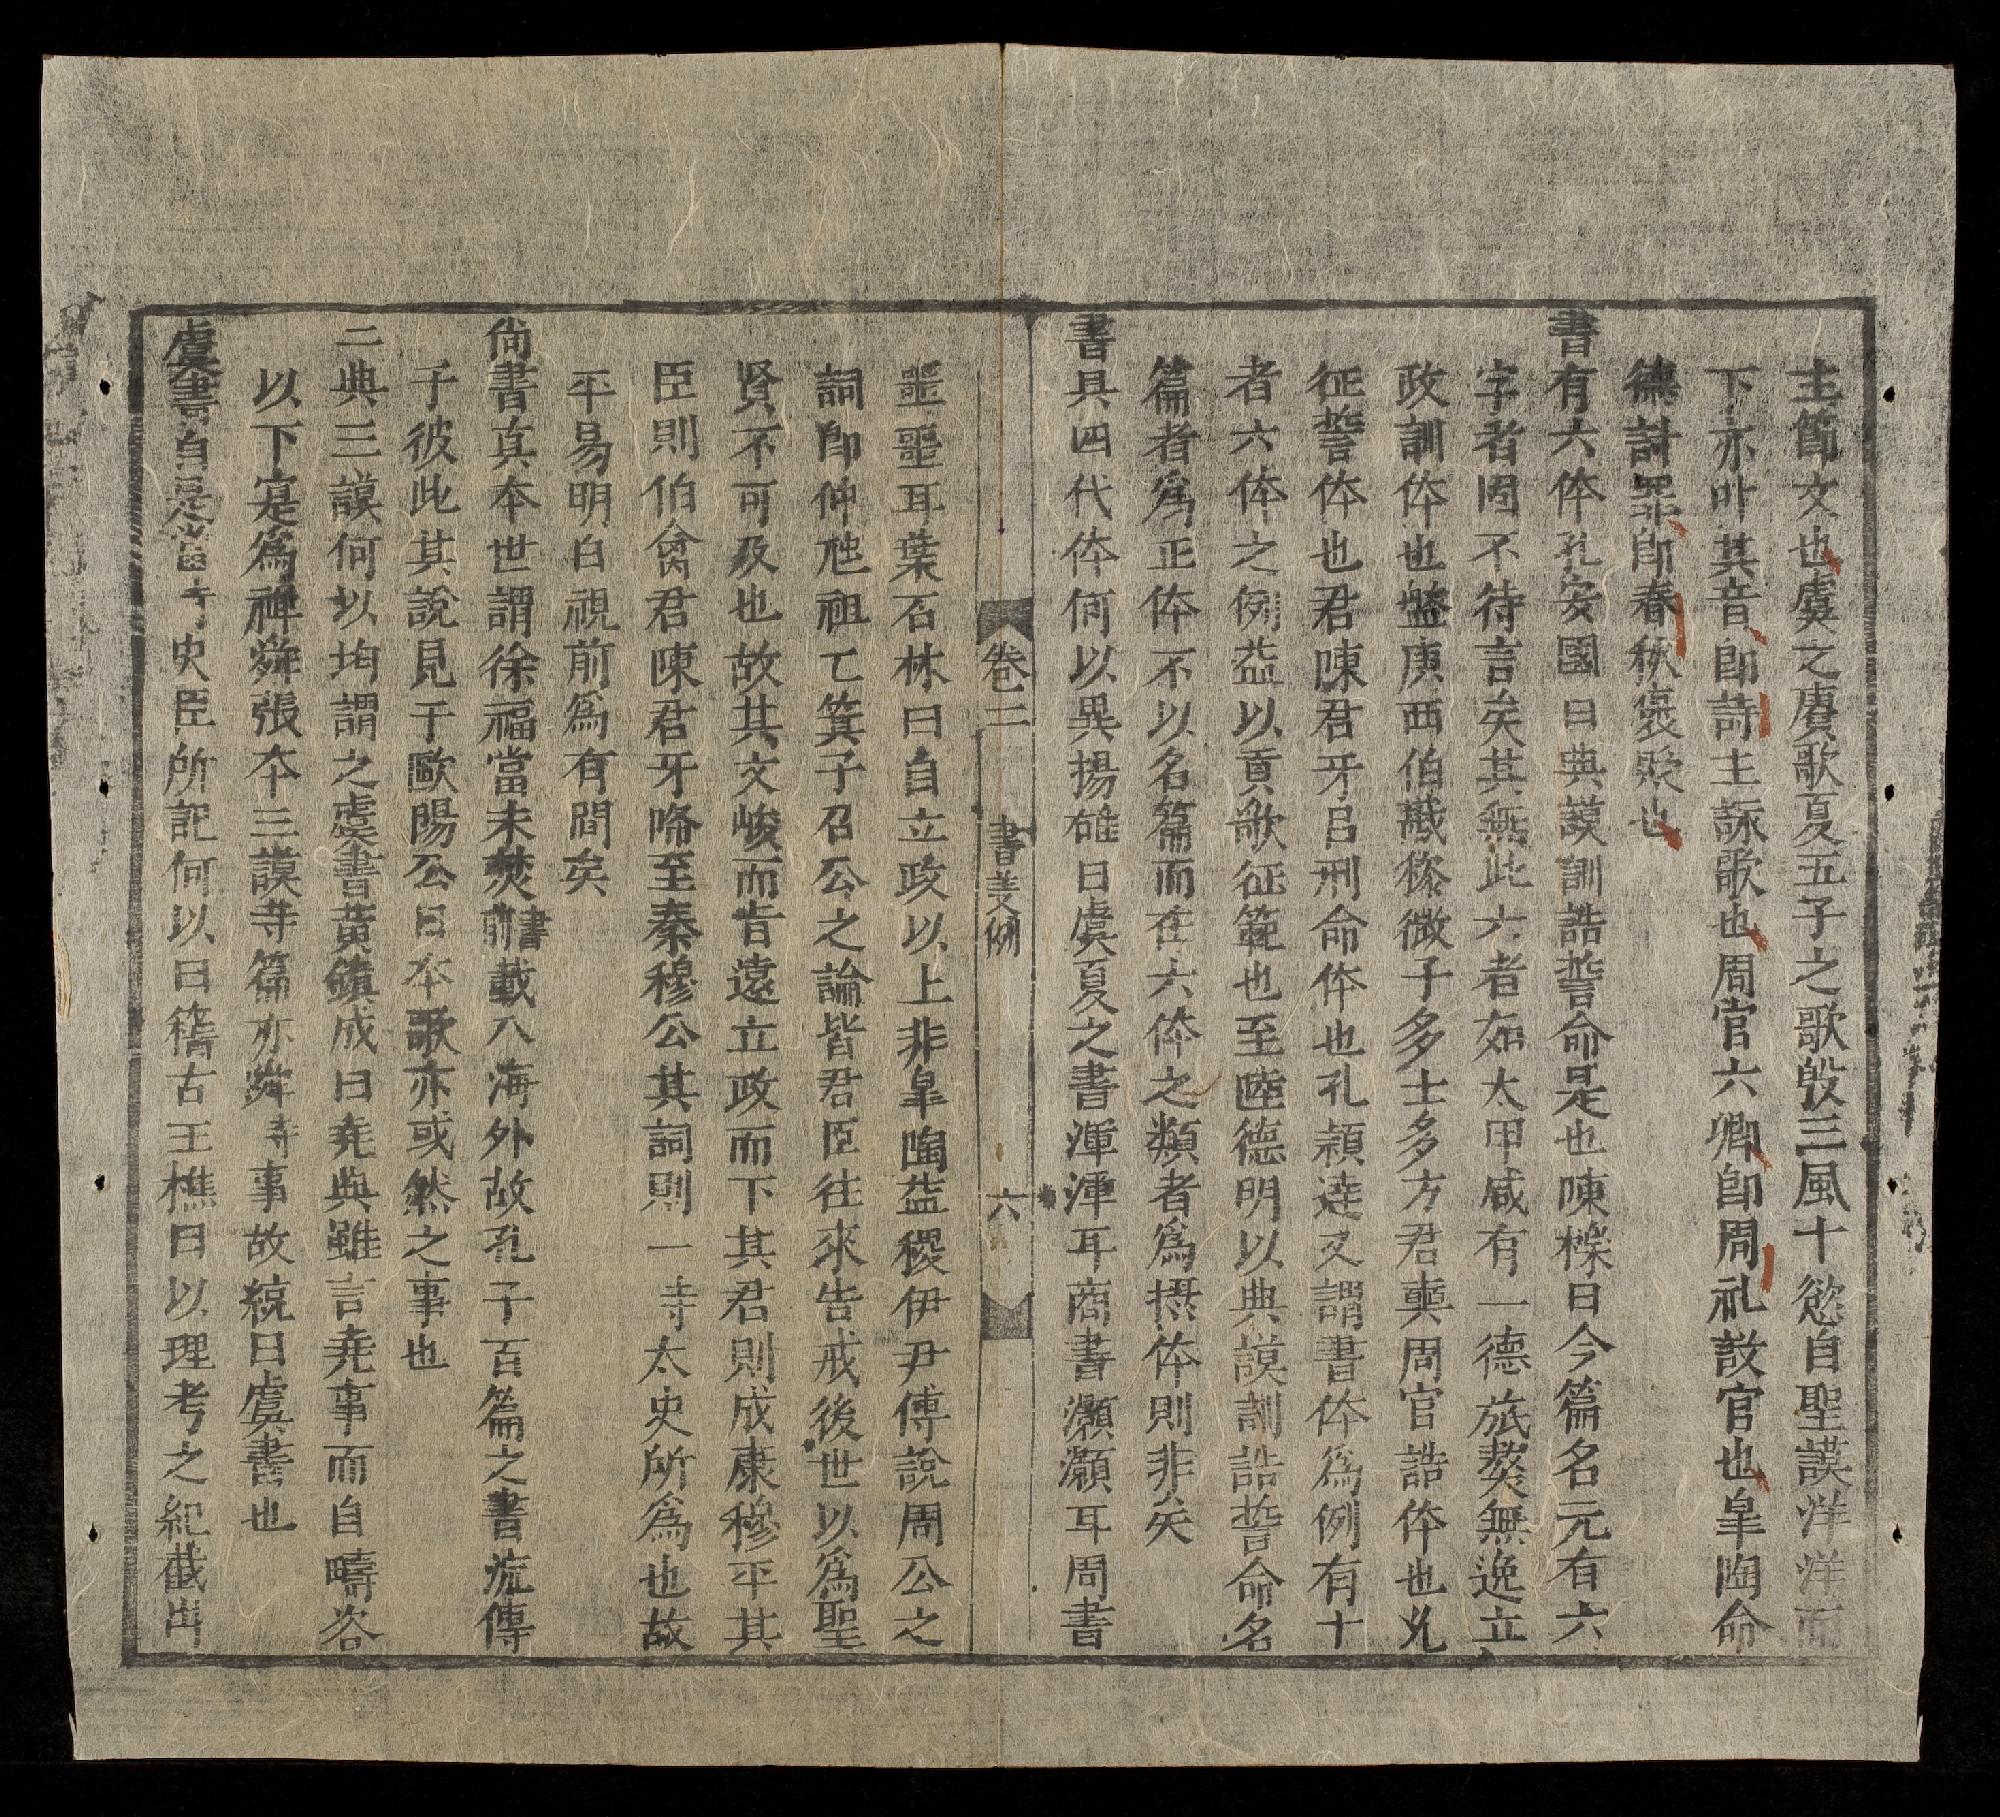 主節文也虞之賡歌夏五子之歌殷三風十愆自聖謨洋洋而
下亦叶其音即詩主詠歌也周官六卿即周礼設官也皐陶命
德討罪即春秋褒貶也
書有六体孔安國曰典謨訓誥誓命是也陳櫟曰今篇名元有六
字者固不待言矣其無此六者如太甲咸有一德旅獒無逸立
政訓体也盤庚西伯戡黎微子多士多方君奭周官誥体也胤
征誓体也君陳君牙呂刑命体也孔穎達又謂書体為例有十
者六体之例益以貢歌征範也至陸德明以典謨訓誥誓命名
篇者為正体不以名篇而在六体之類者為攝体則非矣
書具四代体何以異揚雄曰虞夏之書渾渾耳商書灝灝耳周書
卷二 書義例 六
噩噩耳葉石林曰自立政以上非皐陶益稷伊尹傅說周公之
詞即仲虺祖乙箕子召公之論皆君臣往來告戒後世以為聖
賢不可及也故其文峻而旨遠立政而下其君則成康穆平其
臣則伯禽君陳君牙啼至秦穆公其詞則一時太史所為也故
平易明白視前為有間矣
尚書真本世謂徐福當未焚書前載入海外故孔子百篇之書流傳
于彼此其說見于歐陽公日本歌亦或然之事也
二典三謨何以均謂之虞書黃鎮成曰堯典雖言堯事而自疇咨
以下寔為禪舜張本三謨等篇亦舜時事故統曰虞書也
虞書自是當時史臣所記何以曰稽古王樵曰以理考之紀載出